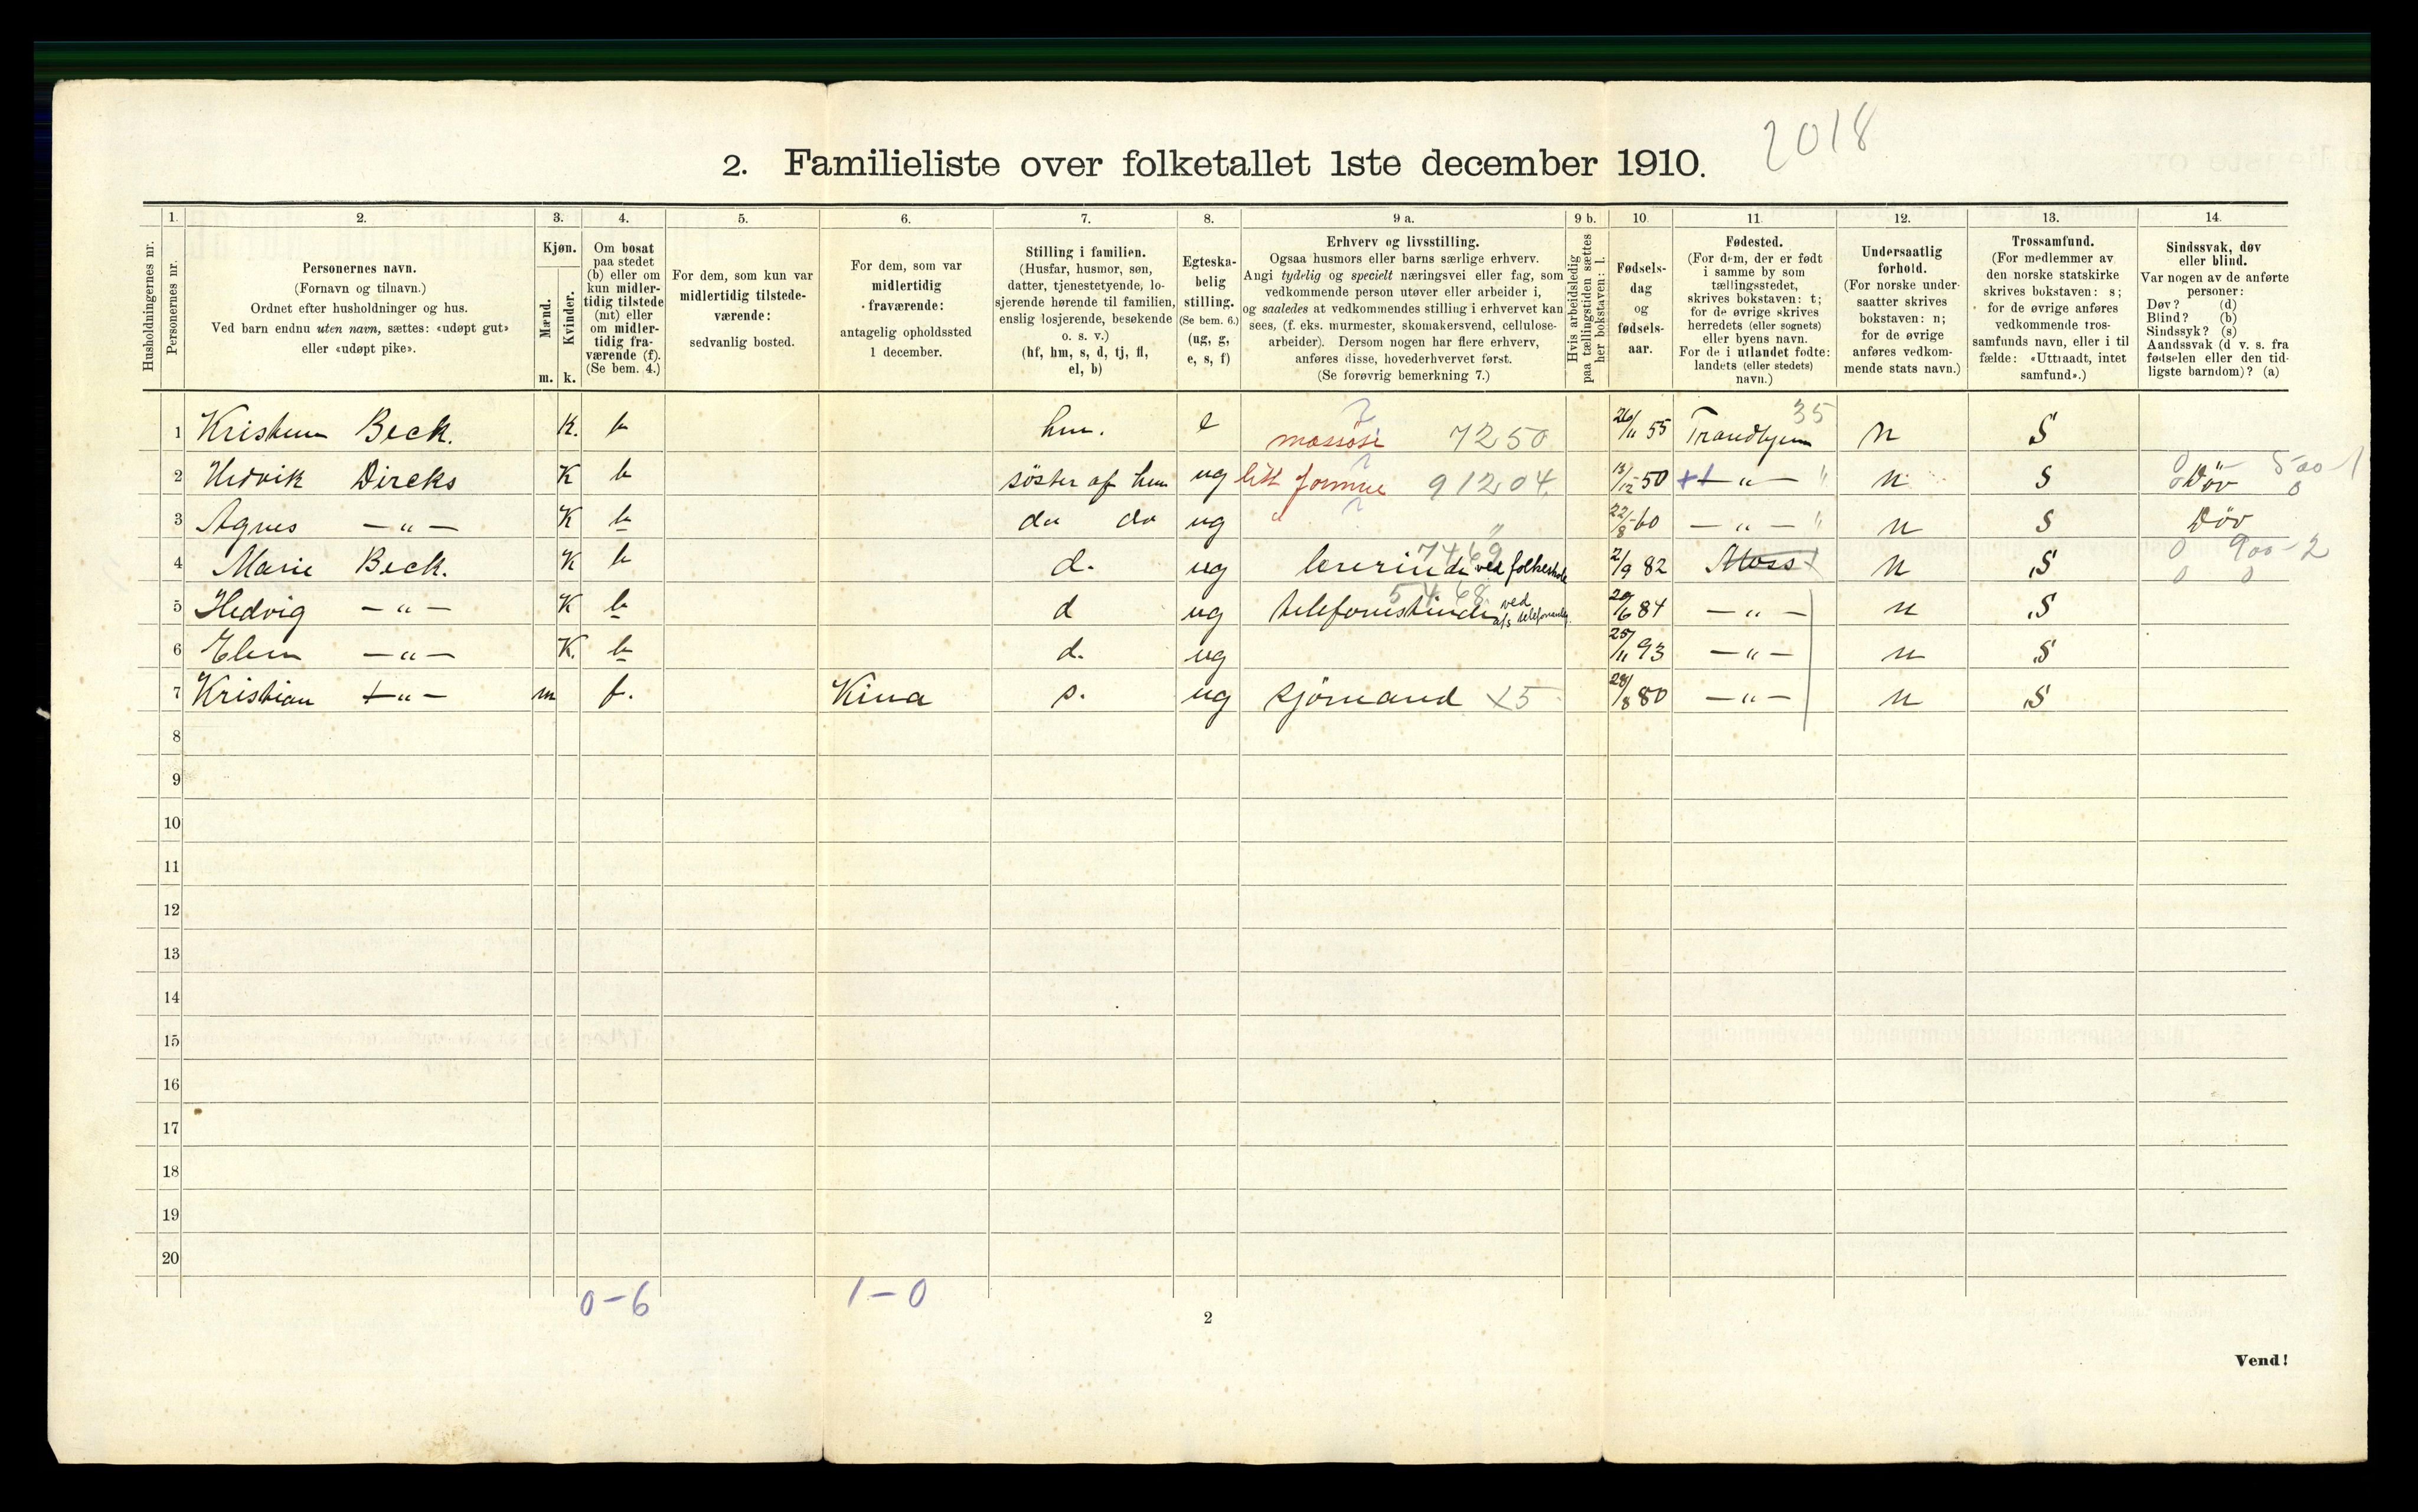 2018
2. Familieliste over folketallet 1ste december 1910.
1. 2. 3. 4. 5. 6. 7. 8. 9 a. 9 b. 10. 11. 12. 13. 14.
Husholdningernes nr.
Personernes nr.
Personernes navn.
(Fornavn og tilnavn.)
Ordnet efter husholdninger og hus.
Ved barn endnu uten navn, sættes: «udøpt gut»
eller «udøpt pike».
Kjøn.
Mænd.
Kvinder.
m. k.
Om bosat
paa stedet
(b) eller om
kun midler-
tidig tilstede
(mt) eller
om midler-
tidig fra-
værende (f).
(Se bem. 4.)
For dem, som kun var
midlertidig tilstede-
værende:
sedvanlig bosted.
For dem, som var
midlertidig
fraværende:
antagelig opholdssted
1 december.
Stilling i familien.
(Husfar, husmor, søn,
datter, tjenestetyende, lo-
sjerende hørende til familien,
enslig losjerende, besøkende
o. s. v.)
(hf, hm, s, d, tj, fl,
el, b)
Egteska-
belig
stilling.
(Se bem. 6.)
(ug, g,
e, s, f)
Erhverv og livsstilling.
Ogsaa husmors eller barns særlige erhverv.
Angi tydelig og specielt næringsvei eller fag, som
vedkommende person utøver eller arbeider i,
og saaledes at vedkommendes stilling i erhvervet kan
sees, (f. eks. murmester, skomakersvend, cellulose-
arbeider). Dersom nogen har flere erhverv,
anføres disse, hovederhvervet først.
(Se forøvrig bemerkning 7.)
Hvis arbeidsledig
paa tællingstiden sættes
her bokstaven: l.
Fødsels-
dag
og
fødsels-
aar.
Fødested.
(For dem, der er født
i samme by som
tællingsstedet,
skrives bokstaven: t;
for de øvrige skrives
herredets (eller sognets)
eller byens navn.
For de i utlandet fødte:
landets (eller stedets)
navn.)
Undersaatlig
forhold.
(For norske under-
saatter skrives
bokstaven: n;
for de øvrige
anføres vedkom-
mende stats navn.)
Trossamfund.
(For medlemmer av
den norske statskirke
skrives bokstaven: s;
for de øvrige anføres
vedkommende tros-
samfunds navn, eller i til-
fælde: «Uttraadt, intet
samfund».)
Sindssvak, døv
eller blind.
Var nogen av de anførte
personer:
Døv? (d)
Blind? (b)
Sindssyk? (s)
Aandssvak (d v. s. fra
fødselen eller den tid-
ligste barndom)? (a)
1 Beck. K. b hm. e massøse 7250 26/11 55 Trondhjem 35 n S
2 Hedvik Dircks K b söster af hm ug litt formue 91204. 13/12 50 — " — n S Döv 500-1
3 Agnes — " — K b do do ug " 22/8 60 — " — n S Döv
4 Marie Beck. K b d. ug 7469 lererinde ved folkeskole 2/9 82 Moss n S 900-2
5 Hedvig — " — K b d ug 5468 telefonistinde ved 29/6 84 — " — n S
6 — " — K. b d. ug 25/11 93 — " — n S
7 Kristian — " — m f. Kina s. ug sjömand X5 28/8 80 — " — n S
8
9
10
11
12
13
14
15
16
17
18
19
20
0-6 1-0
2
Vend!